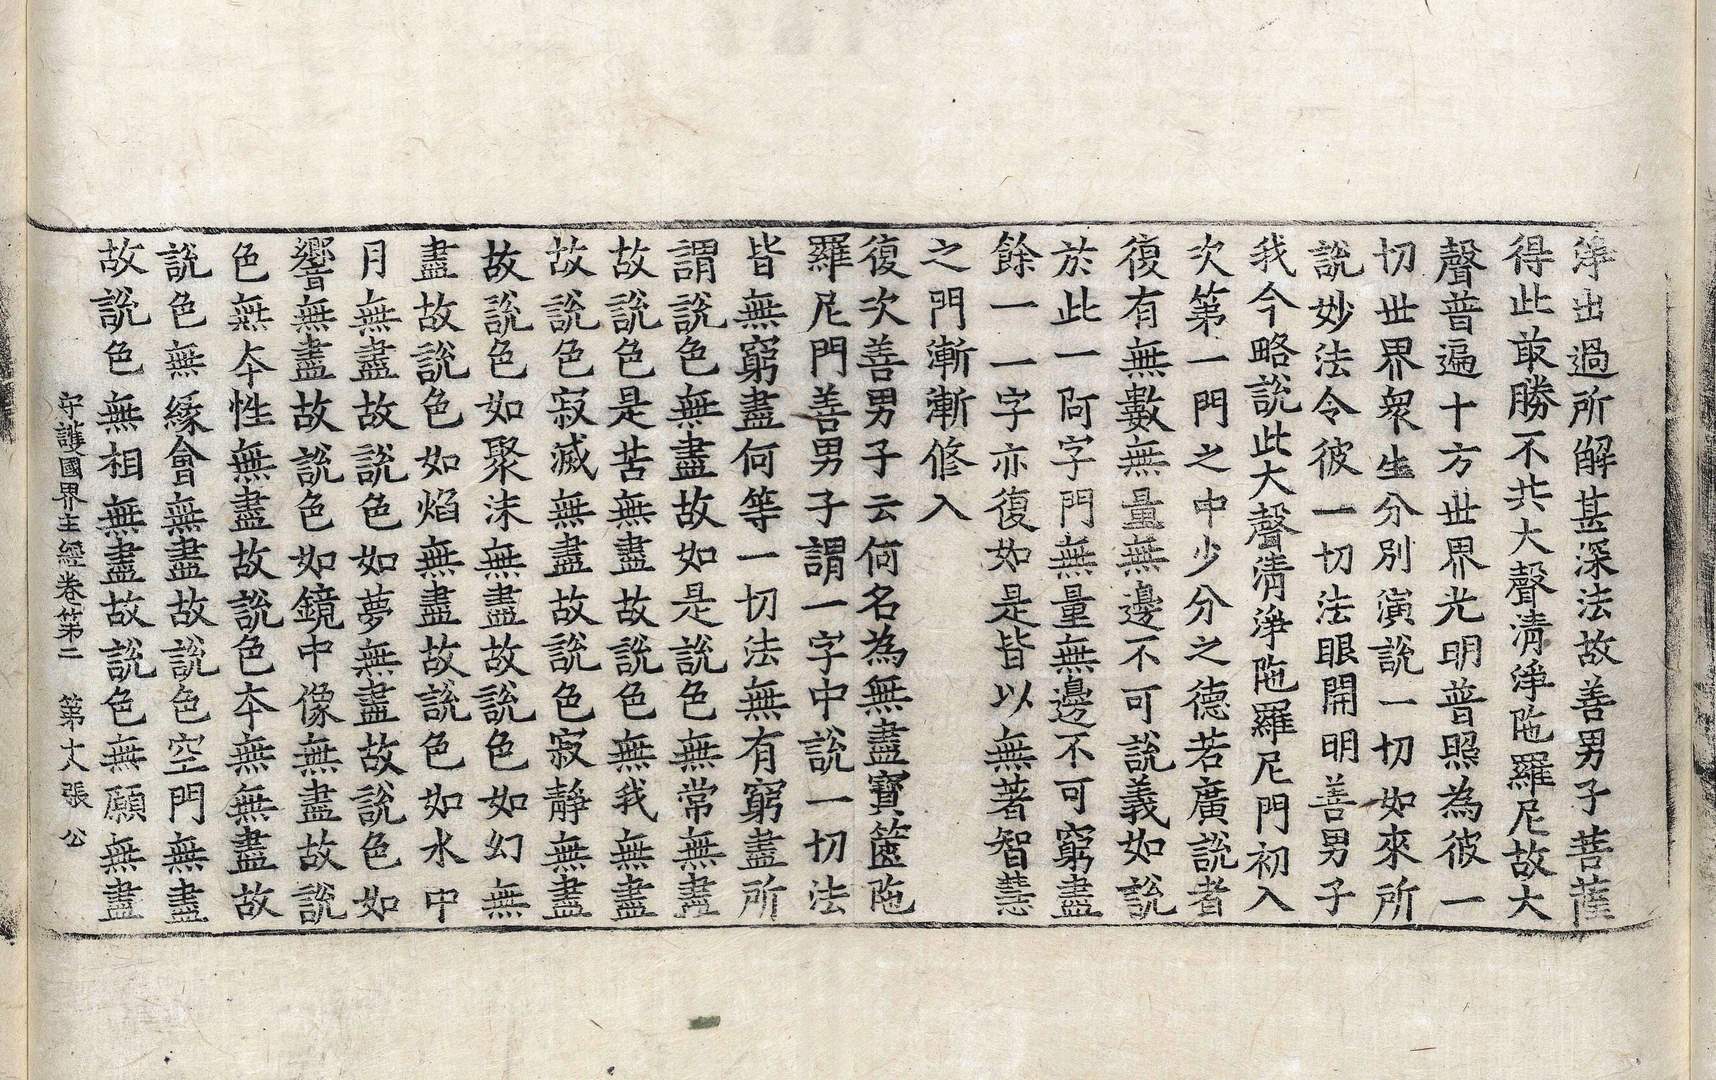 淨出過所解甚深法故善男子菩薩
得此㝡勝不共大聲清淨陁羅尼故大
聲普遍十方世界光明普照為彼一
切世界衆生分別演說一切如來所
說妙法令彼一切法眼開明善男子
我今略說此大聲清淨陁羅尼門初入
次第一門之中少分之德若廣說者
復有無數無量無邊不可說義如說
於此一阿字門無量無邊不可窮盡
餘一一字亦復如是皆以無著智慧
之門漸漸修入
復次善男子云何名為無盡寶篋陁
羅尼門善男子謂一字中說一切法
皆無窮盡何等一切法無有窮盡所
謂說色無盡故如是說色無常無盡
故說色是苦無盡故說色無我無盡
故說色寂滅無盡故說色寂靜無盡
故說色如聚沫無盡故說色如幻無
盡故說色如焰無盡故說色如水中
月無盡故說色如夢無盡故說色如
響無盡故說色如鏡中像無盡故說
色無夲性無盡故說色夲無無盡故
說色無緣會無盡故說色空門無盡
故說色無相無盡故說色無願無盡
守護國界主經卷第二　第十八張　公